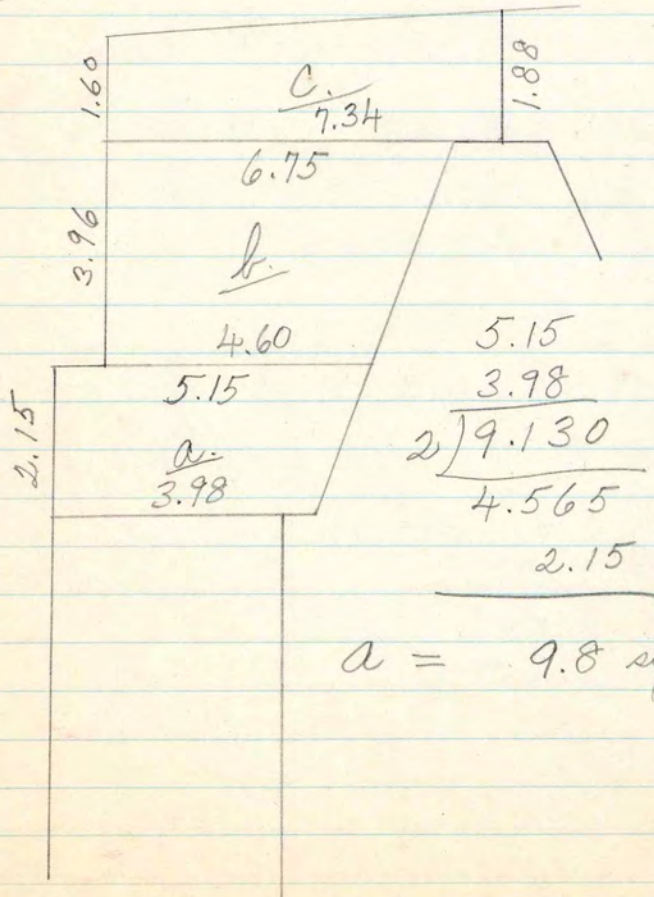 1.60
C.
7.34
1.88
6.75
3.96
b.
4.60
5.15
2.15
a.
3.98
5.15
3.98
2)9.130
4.565
2.15
a = 9.8